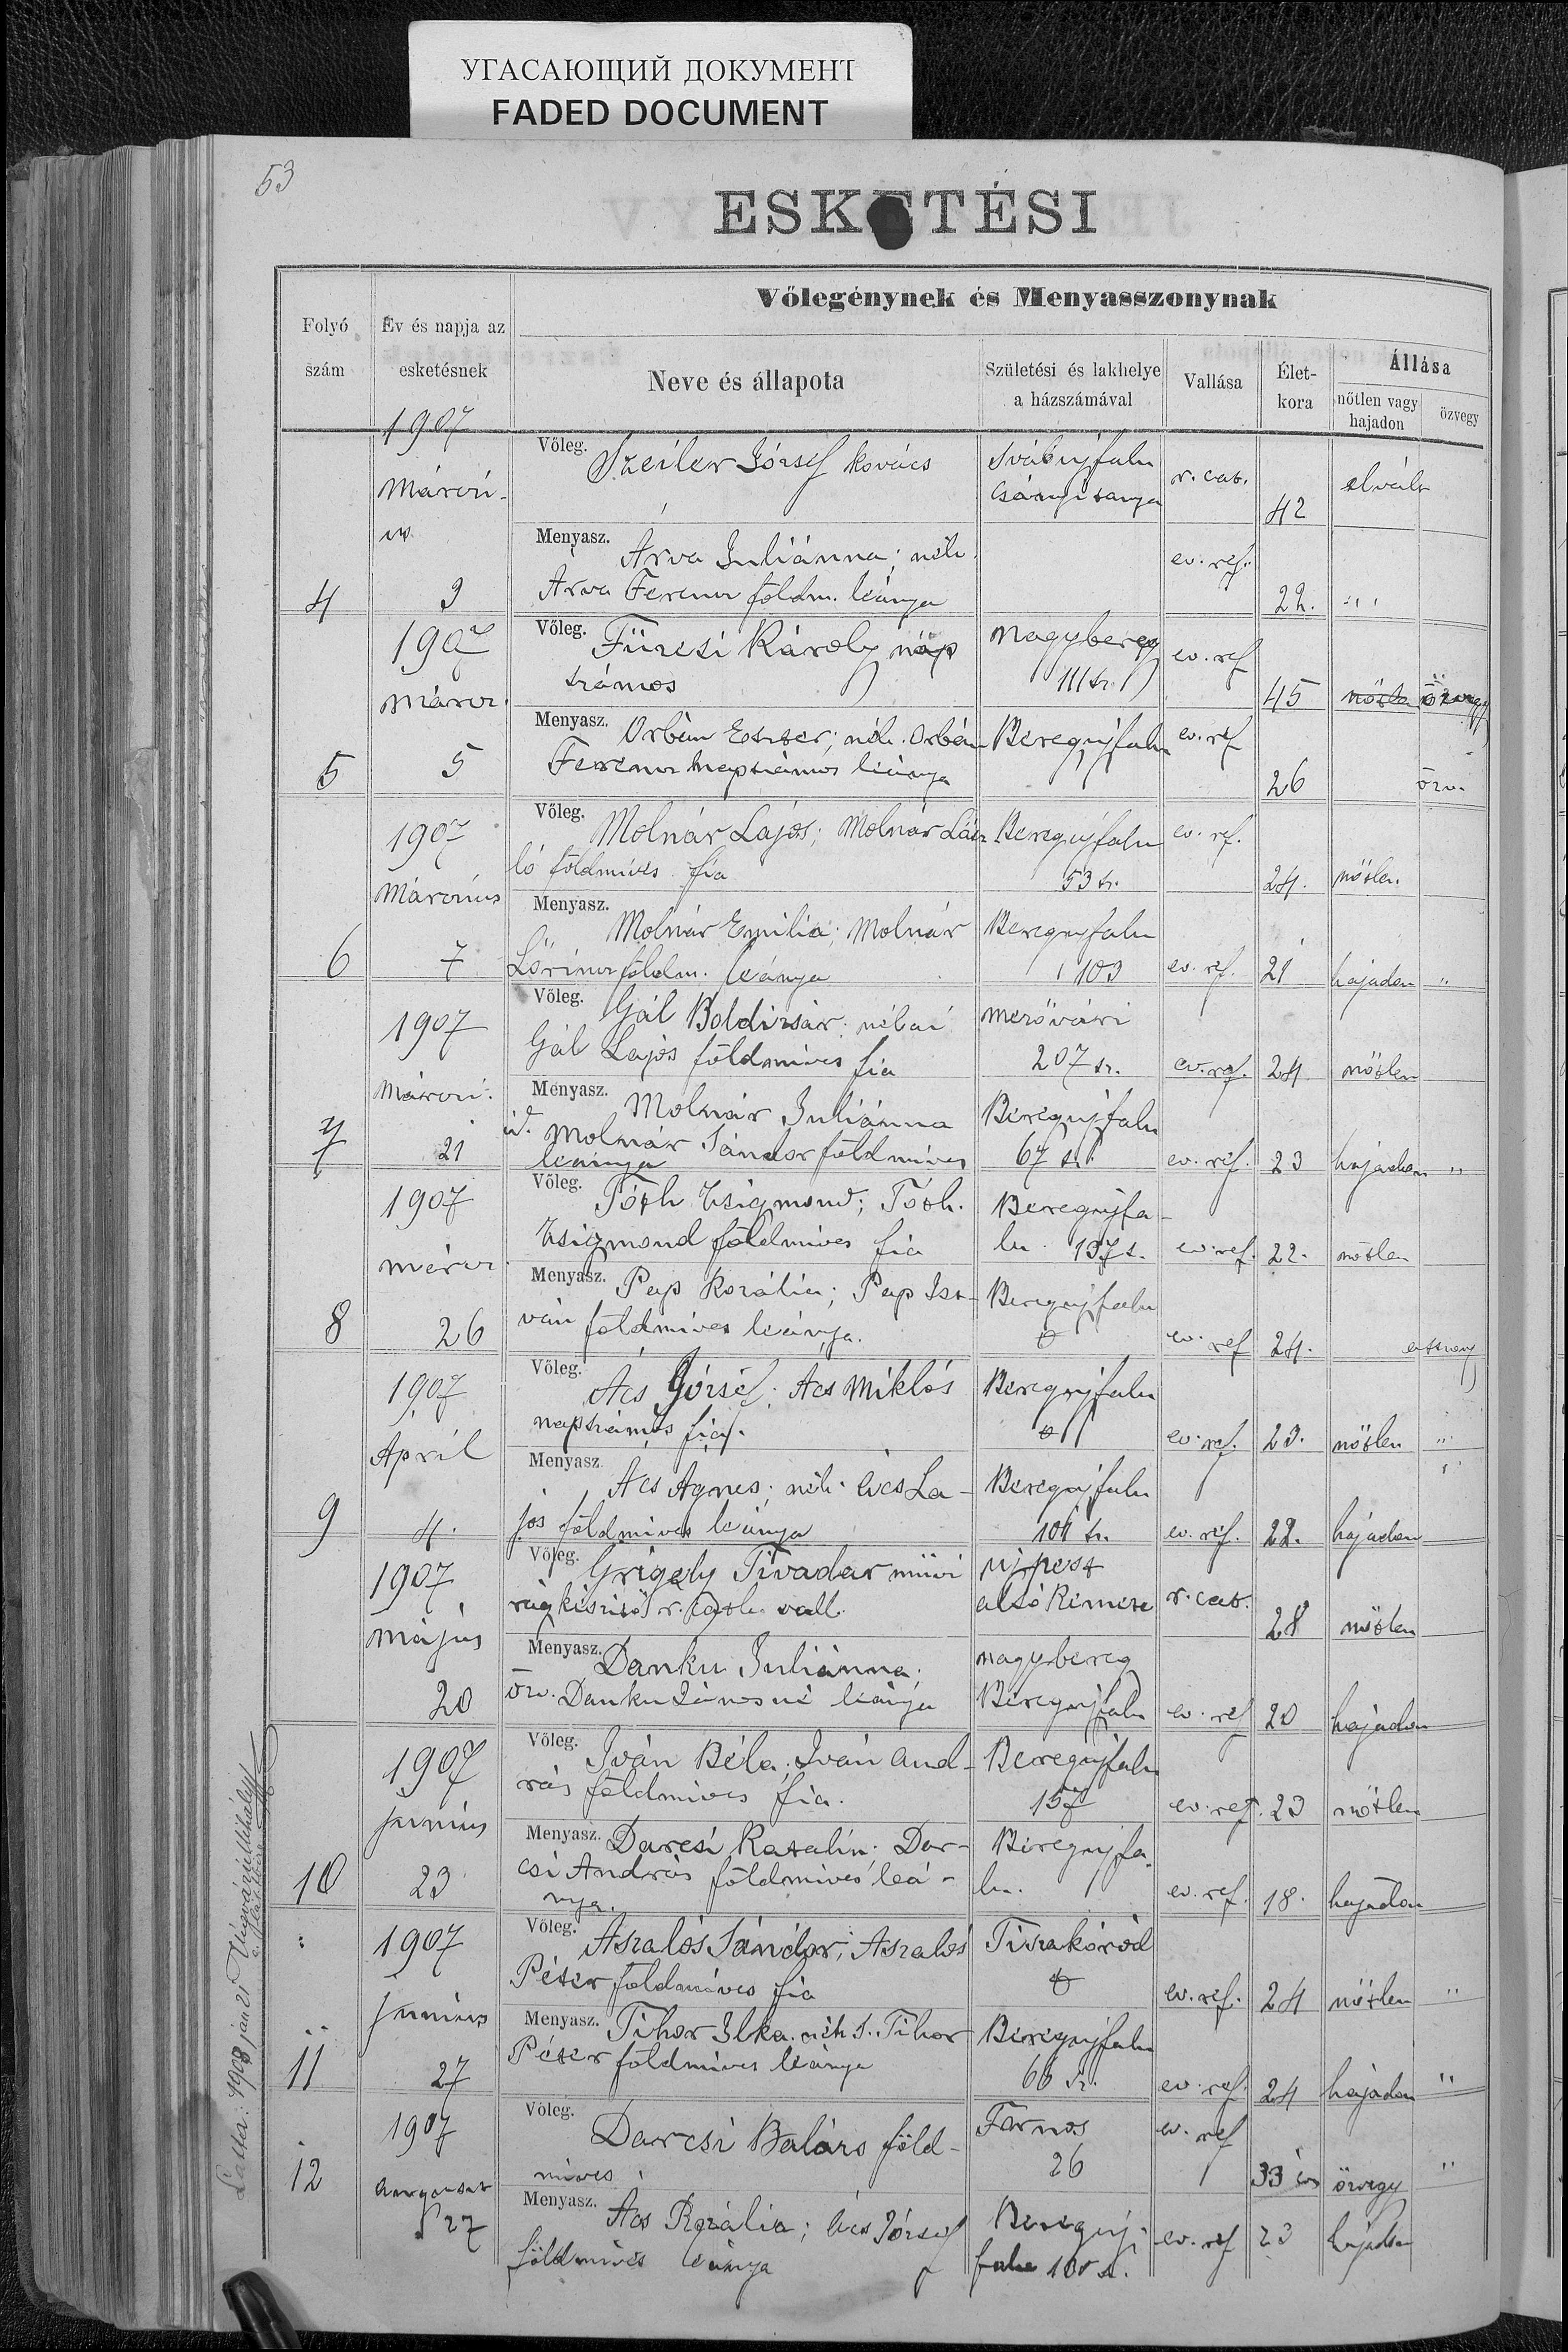 УГАСАЮЩИЙ ДОКУМЕНТ
FADED DOCUMENT
53
ESKETÉSI
Vőlegénynek és Menyasszonynak
Folyó szám
Év és napja az esketésnek
Neve és állapota
Születési és lakhelye a házszámával
Vallása
Élet-kora
Állása
nőtlen vagy hajadon
özvegy
1907
Vőleg. Szeiler József kovács Svábujfalu r. cat. elvált
Márczi- Csányi tanya 42
us Menyasz. Árva Juliánna; néh. ev. ref.
4 3 Árva Ferencz földm. leánya 22. "
1907 Vőleg. Füzesi Károly nap Nagybereg ev. ref
Márcz. számos 111 sz. 45 nőtlen özvegy
Menyasz. Orbán Eszter; néh. Orbán Beregujfalu ev. ref
5 5 Ferencz napszámos leánya 26 özv.
1907 Vőleg. Molnár Lajos; Molnár Lász Beregujfalu ev. ref.
Márczius ló földmíves fia 53 sz. 24. nőtlen.
Menyasz. Molnár Emilia; Molnár Beregujfalu
6 7 Lőrincz földm. leánya 103 ev. ref. 21 hajadon "
1907 Vőleg. Gál Boldizsár; néhai Mezővári
Gál Lajos földmíves fia 207 sz. ev. ref. 24 nőtlen
Márczi. Menyasz. Molnár Juliánna Beregujfalu
7 21 id. Molnár Sándor földmíves 67 sz. ev. ref. 23 hajadon "
leánya
1907 Vőleg. Tóth Zsigmond; Tóth Beregujfa-
Zsigmond földmíves fia lu 137 s. ev. ref. 22. nőtlen
Márcz. Menyasz. Pap Rozália; Pap Ist- Beregujfalu
8 26 ván földmíves leánya. ev. ref 24.
1907 Vőleg. Ács József; Ács Miklós Beregujfalu
April napszámos fia. ev. ref. 23. nőtlen "
Menyasz. Ács Ágnes; néh. Ács La- Beregujfalu
9 4. jos földmíves leánya 101 sz. ev. ref. 22. hajadon
1907 Vőleg. Grigely Tivadar művi Ujpest
rágkészítő r. cath. vall. alsó r. cat.
Május 28 nőtlen
Menyasz. Danku Juliánna; Nagybereg
20 özv. Danku Jánosné leánya Beregujfalu ev. ref 20 hajadon
1907 Vőleg. Iván Béla; Iván And- Beregujfalu
Junius rás földmíves fia. 157 ev. ref. 23 nőtlen
Menyasz. Darcsi Katalin; Dar- Beregujfa-
10 23 csi András földmíves leá- lu. ev. ref. 18. hajadon
nya.
1907 Vőleg. Aszalós Sándor; Aszalós Tiszakóród
Junius Péter földmíves fia ev. ref. 24 nőtlen "
Menyasz. Tihor Ilka néh. Tihor Beregujfalu
11 27 Péter földmíves leánya 66 sz. ev. ref. 24 hajadon "
1907 Vőleg. Darcsi Balázs föld- Farnos ev. ref
12 Auguszt míves 26 33 év özvegy "
27 Menyasz. Ács Rozália; Ács József Bereguj- ev. ref 23 hajadon
földmíves leánya falu 100 sz.
Látta: 1908 jan 21